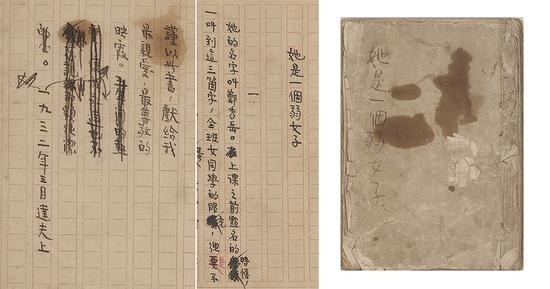 謹以此書，獻給我
最親愛、最尊敬的
映霞。
一九三二年三月達夫上
她是一個弱女子
一
她的名字叫鄭秀岳。上课之前點名的時候，
一叫到這三個字，全班女同學的眼光，總要不
她是一個弱女子